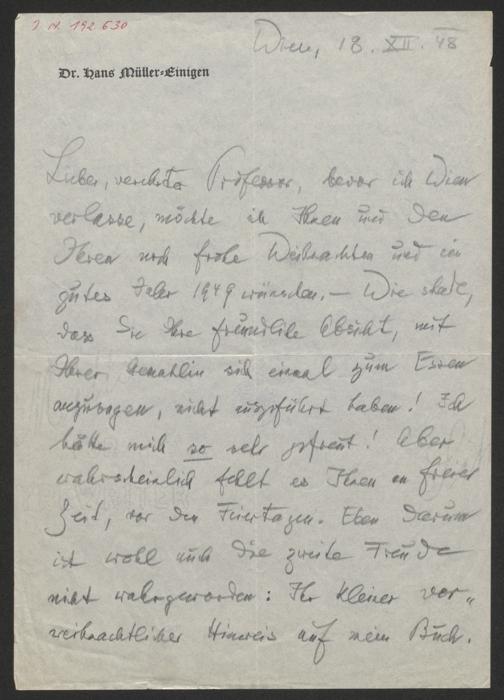 J. N. 192.630
Wien, 18. XII. 48
Dr. Hans Müller-Einigen
Lieber, verehrter Professor, bevor ich Wien
verlasse, möchte ich Ihnen und den
Ihren noch frohe Weihnachten und ein
gutes Jahr 1949 wünschen. – Wie schade,
dass Sie Ihre freundliche Absicht, mit
Ihrer Gemahlin sich einmal zum Essen
anzusagen, nicht ausgeführt haben! Ich
hätte mich so sehr gefreut! Aber
wahrscheinlich fehlt es Ihnen an freier
Zeit, vor den Feiertagen. Eben darum
ist wohl auch die zweite Freude
nicht wahrgeworden: Ihr kleiner vor-
weihnachtlicher Hinweis auf mein Buch.